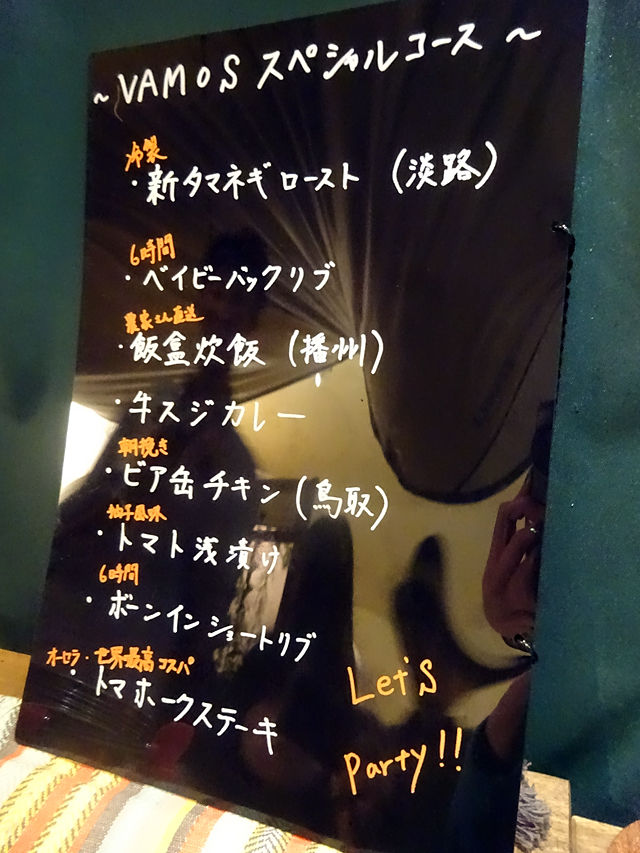 ~ VAMOS スペシャルコース ~
冷製
・新タマネギロースト (淡路)
6時間
・ベイビーバックリブ
農家さん直送
・飯盒炊飯 (播州)
・牛スジカレー
朝挽き
・ビア缶チキン (鳥取)
柚子風味
・トマト浅漬け
6時間
・ボーンインショートリブ
オーセラ・世界最高コスパ
・トマホークステーキ
Let's
party!!